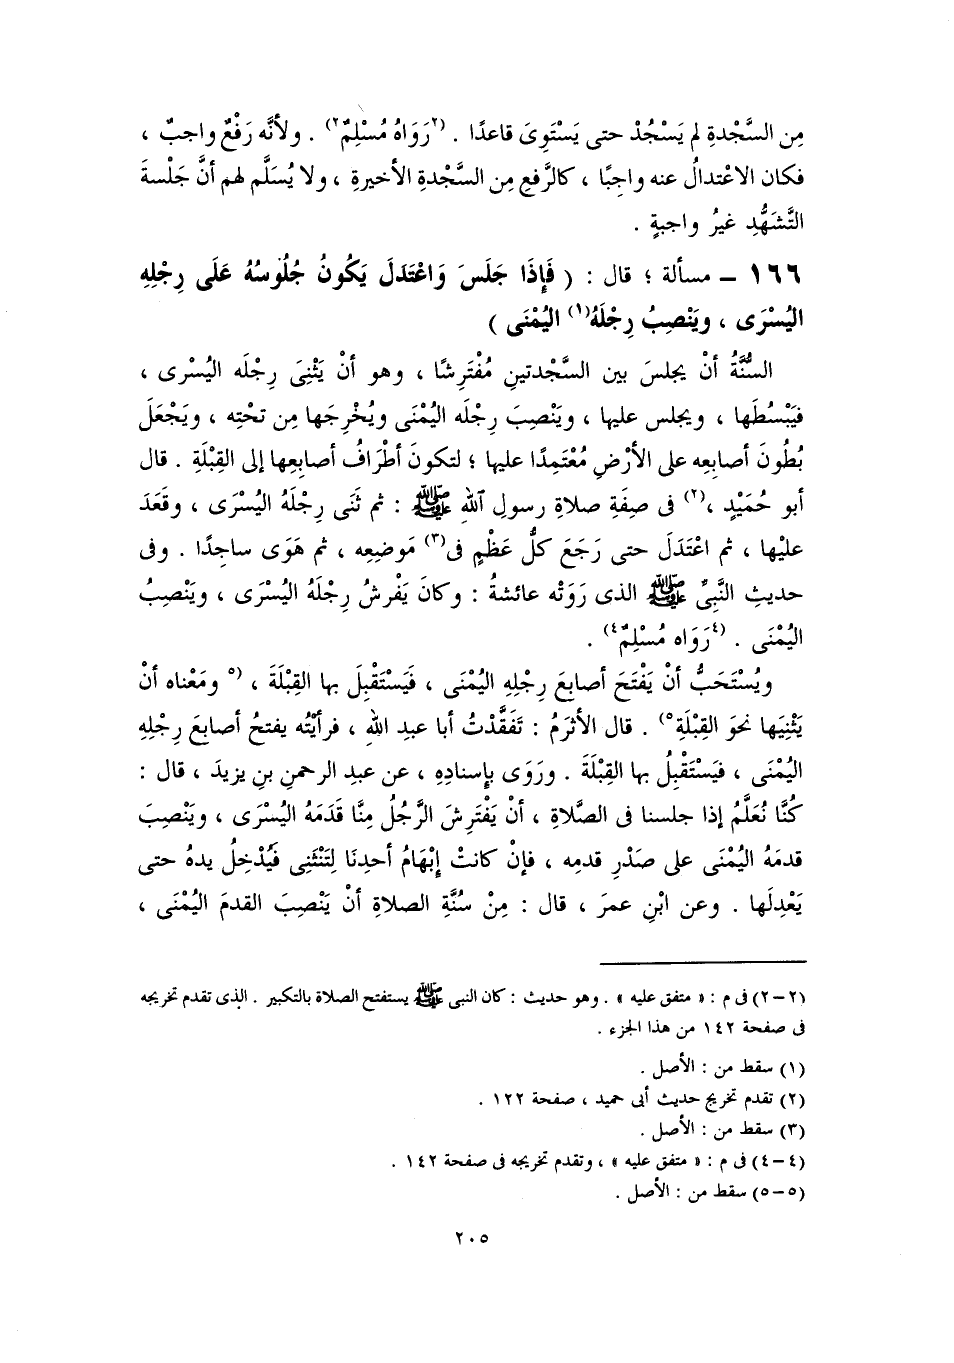 مِن السَّجْدةِ لم يَسْجُدْ حتى يَسْتَوِىَ قاعدًا . (٢رَوَاهُ مُسْلِمٌ٢) . ولأنَّه رَفْعٌ واجبٌ ،
فكان الاعْتدالُ عنه واجبًا ، كالرَّفعِ مِن السَّجْدةِ الأخيرةِ ، ولا يُسَلَّم لهم أنَّ جَلْسةَ
التَّشَهُّدِ غيرُ واجبةٍ .
١٦٦ – مسألة ؛ قال : ( فَإِذَا جَلَسَ وَاعْتَدَلَ يَكُونُ جُلُوسُهُ عَلَى رِجْلِهِ
اليُسْرَى ، ويَنْصِبُ رِجْلَهُ(١) اليُمْنَى )
السُّنَّةُ أنْ يجلسَ بين السَّجْدتينِ مُفْتَرِشًا ، وهو أنْ يَثْنِىَ رِجْلَه اليُسْرى ،
فيَبْسُطَها ، ويجلس عليها ، ويَنْصِبَ رِجْلَه اليُمْنَى ويُخْرِجَها مِن تحْتِه ، ويَجْعَلَ
بُطُونَ أصابعِه على الأرْضِ مُعْتَمِدًا عليها ؛ لتكونَ أطْرَافُ أصابعِها إلى القِبْلَةِ . قال
أبو حُمَيْدٍ ،(٢) فى صِفَةِ صلاةِ رسولِ اللهِ ﷺ : ثم ثَنَى رِجْلَهُ اليُسْرَى ، وقَعَدَ
عليْها ، ثم اعْتَدَلَ حتى رَجَعَ كلُّ عَظْمٍ فى(٣) مَوضِعِه ، ثم هَوَى ساجِدًا . وفى
حديثِ النَّبِىِّ ﷺ الذى رَوَتْه عائشةُ : وكانَ يَفْرِشُ رِجْلَهُ اليُسْرَى ، ويَنْصِبُ
اليُمْنَى . (٤رَوَاه مُسْلِمٌ٤) .
ويُسْتَحَبُّ أنْ يَفْتَحَ أصابعَ رِجْلِهِ اليُمْنَى ، فَيَسْتَقْبِلَ بها القِبْلَةَ ، (٥ ومَعْناه أنْ
يَثْنِيَها نحْوَ القِبْلَةِ٥) . قال الأثرَمُ : تَفَقَّدْتُ أبا عبدِ اللهِ ، فرأيْتُه يفتحُ أصابعَ رِجْلِهِ
اليُمْنَى ، فيَسْتَقْبِلُ بها القِبْلَةَ . ورَوَى بإسنادِهِ ، عن عبدِ الرحمنِ بنِ يزيدَ ، قال :
كُنَّا نُعَلَّمُ إذا جلسنا فى الصَّلاةِ ، أنْ يَفْتَرِشَ الرَّجُلُ مِنَّا قَدَمَهُ اليُسْرَى ، ويَنْصِبَ
قدمَهُ اليُمْنَى على صَدْرِ قدمِه ، فإنْ كانتْ إبْهامُ أحدِنَا لِتَنْثَنِى فَيُدْخِلُ يدهُ حتى
يَعْدِلَها . وعن ابْنِ عمرَ ، قال : مِنْ سُنَّةِ الصلاةِ أنْ يَنْصِبَ القدمَ اليُمْنَى ،
(٢–٢) فى م : « متفق عليه » . وهو حديث : كان النبى ﷺ يستفتح الصلاة بالتكبير . الذى تقدم تخريجه
فى صفحة ١٤٢ من هذا الجزء .
(١) سقط من : الأصل .
(٢) تقدم تخريج حديث أبى حميد ، صفحة ١٢٢ .
(٣) سقط من : الأصل .
(٤–٤) فى م : « متفق عليه » ، وتقدم تخريجه فى صفحة ١٤٢ .
(٥–٥) سقط من : الأصل .
٢٠٥